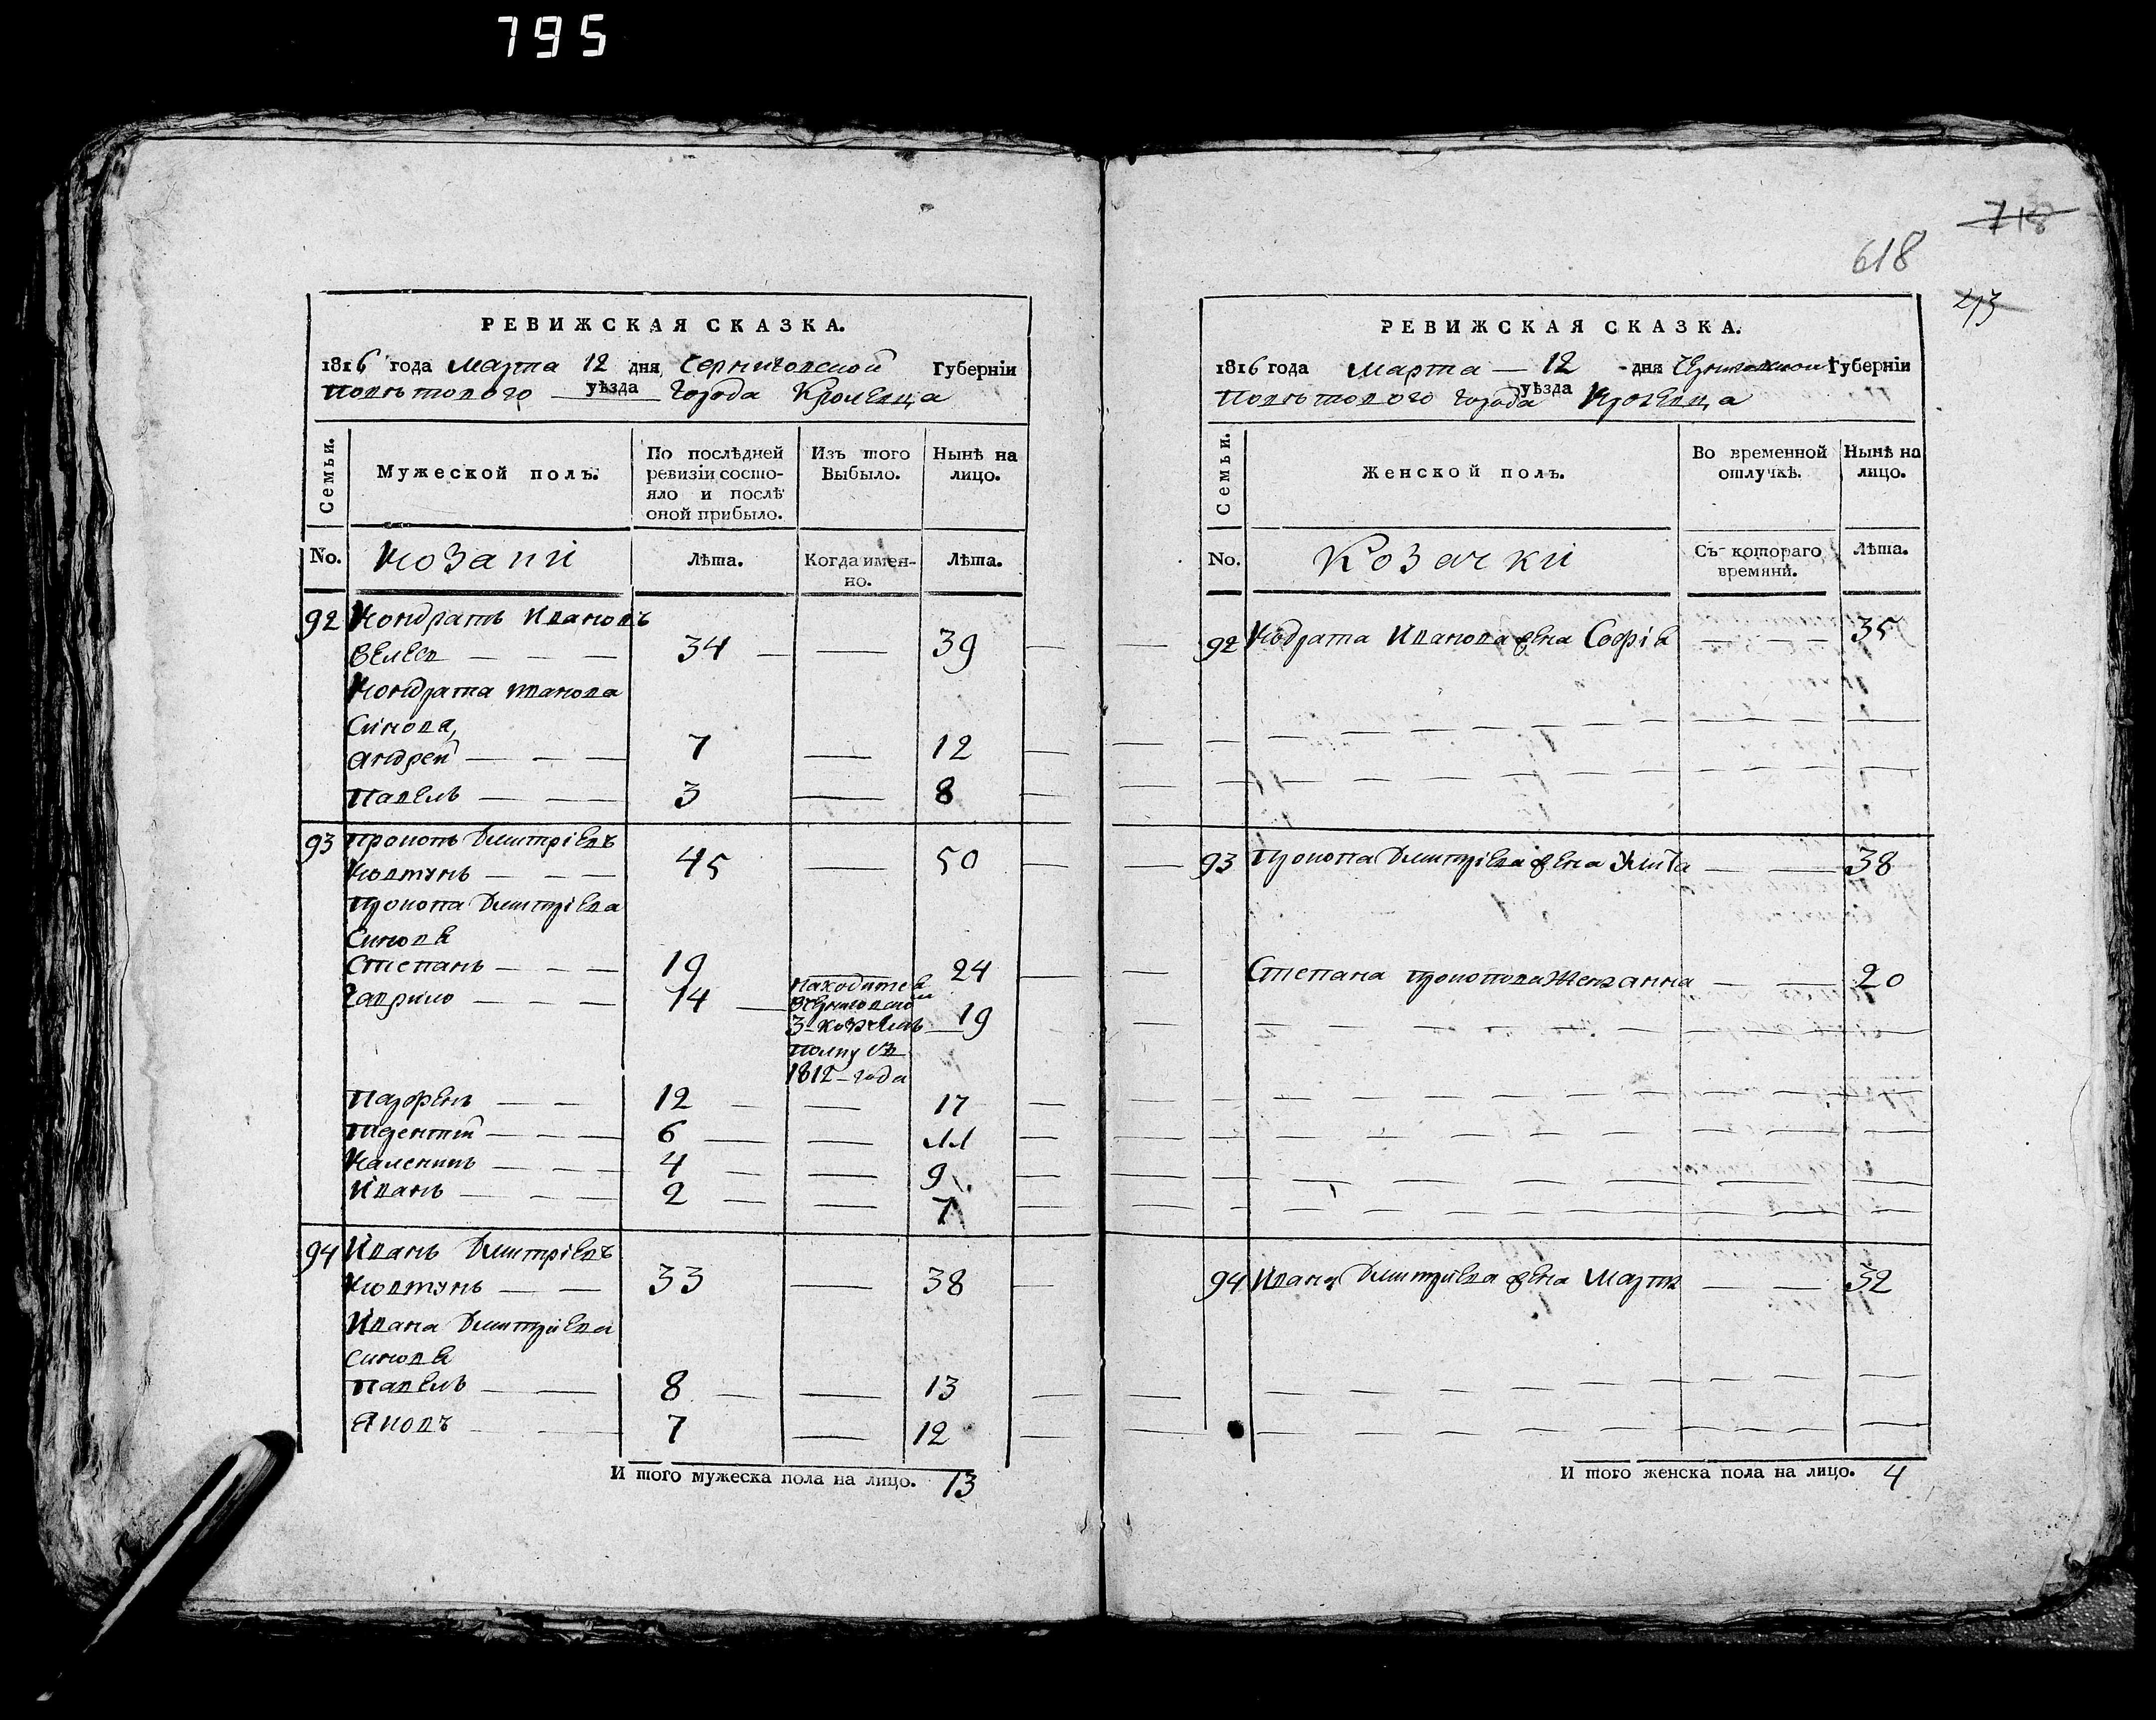 795
718
618
213
РЕВИЖСКАЯ СКАЗКА.
1816 года Марта 12 дня Черниговской Губерніи
Повѣтового уѣзда Города Кролевца
Семьи.
Мужеской полъ.
По послѣдней ревизіи состояло и послѣ оной прибыло.
Изъ того Выбыло.
Нынѣ на лицо.
No. Козаки Лѣта. Когда именно. Лѣта.
92 Кондратъ Ивановъ
34 39
Кондрата Иванова
Синова,
Андрей 7 12
Павелъ 3 8
93 Прокопъ Дмитріевъ
Ковтунъ 45 50
Прокопа Дмитріева
Синовя
Степанъ 19 24
Гаврило 14 находится 19
в Черниговском
3 козачем
полку съ
1812 года
Парфенъ 12 17
Терентій 6 11
Каленикъ 4 9
Иванъ 2 7
94 Иванъ Дмитріевъ
Ковтунъ 33 38
Ивана Дмитріева
синовя
Павелъ 8 13
Яковъ 7 12
И того мужеска пола на лицо. 13
РЕВИЖСКАЯ СКАЗКА.
1816 года Марта 12 дня Черниговской Губерніи
Повѣтового уѣзда города Кролевца
Семьи.
Женской полъ.
Во временной отлучкѣ.
Нынѣ на лицо.
No. Козачки Съ котораго времяни. Лѣта.
92 Кодрата Иванова жена Софія 35
93 Прокопа Дмитріева жена Улита 38
Степана Прокопова жена анна 20
94 Ивана Дмитріева жена Марта 32
И того женска пола на лицо. 4